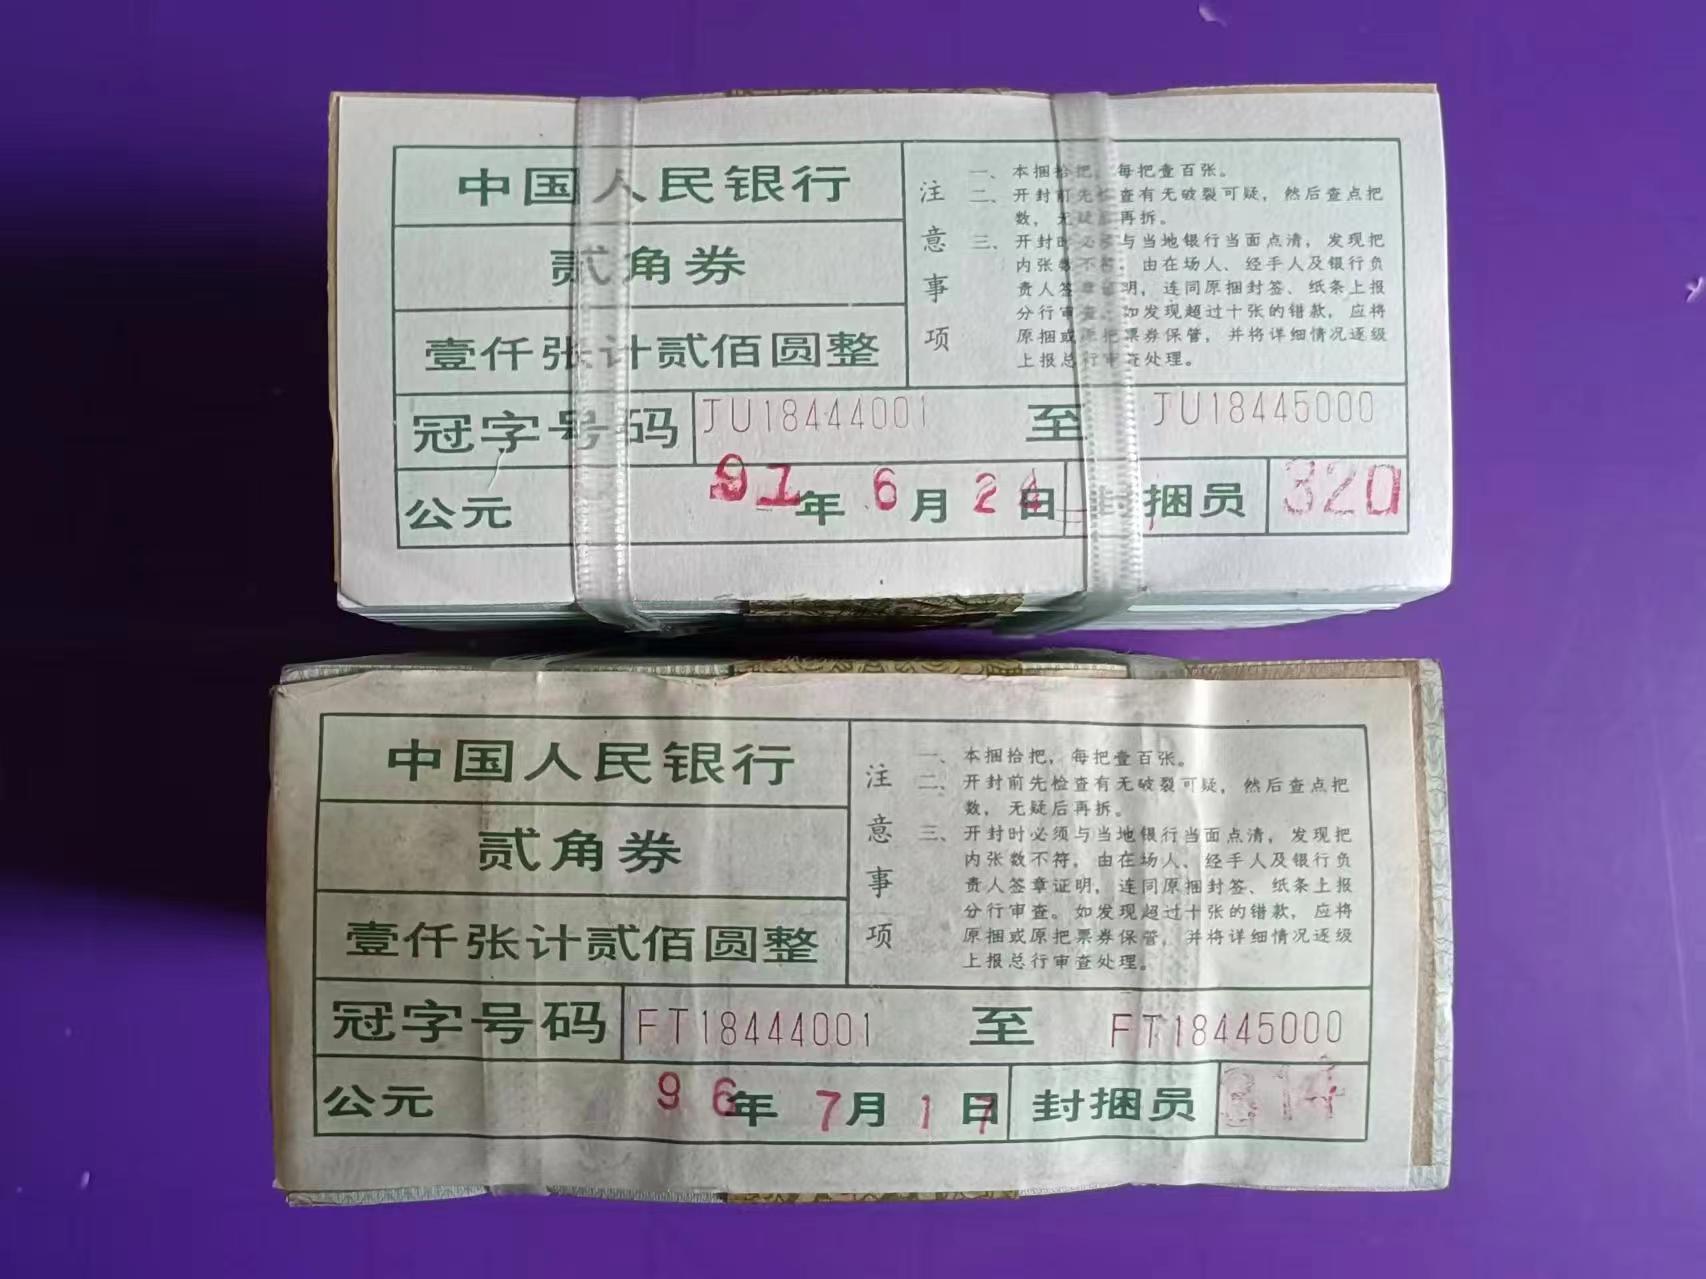 中国人民银行
贰角券
壹仟张计贰佰圆整
注意事项
一、本捆拾把，每把壹百张。
二、开封前先检查有无破裂可疑，然后查点把
数，无疑后再拆。
三、开封时必须与当地银行当面点清，发现把
内张数不符，由在场人、经手人及银行负
责人签章证明，连同原捆封签、纸条上报
分行审查。如发现超过十张的错款，应将
原捆或原把票券保管，并将详细情况逐级
上报总行审查处理。
冠字号码 JU18444001 至 JU18445000
公元 91年 6月 24日 封捆员 320
中国人民银行
贰角券
壹仟张计贰佰圆整
注意事项
一、本捆拾把，每把壹百张。
二、开封前先检查有无破裂可疑，然后查点把
数，无疑后再拆。
三、开封时必须与当地银行当面点清，发现把
内张数不符，由在场人、经手人及银行负
责人签章证明，连同原捆封签、纸条上报
分行审查。如发现超过十张的错款，应将
原捆或原把票券保管，并将详细情况逐级
上报总行审查处理。
冠字号码 FT18444001 至 FT18445000
公元 96年 7月 17日 封捆员